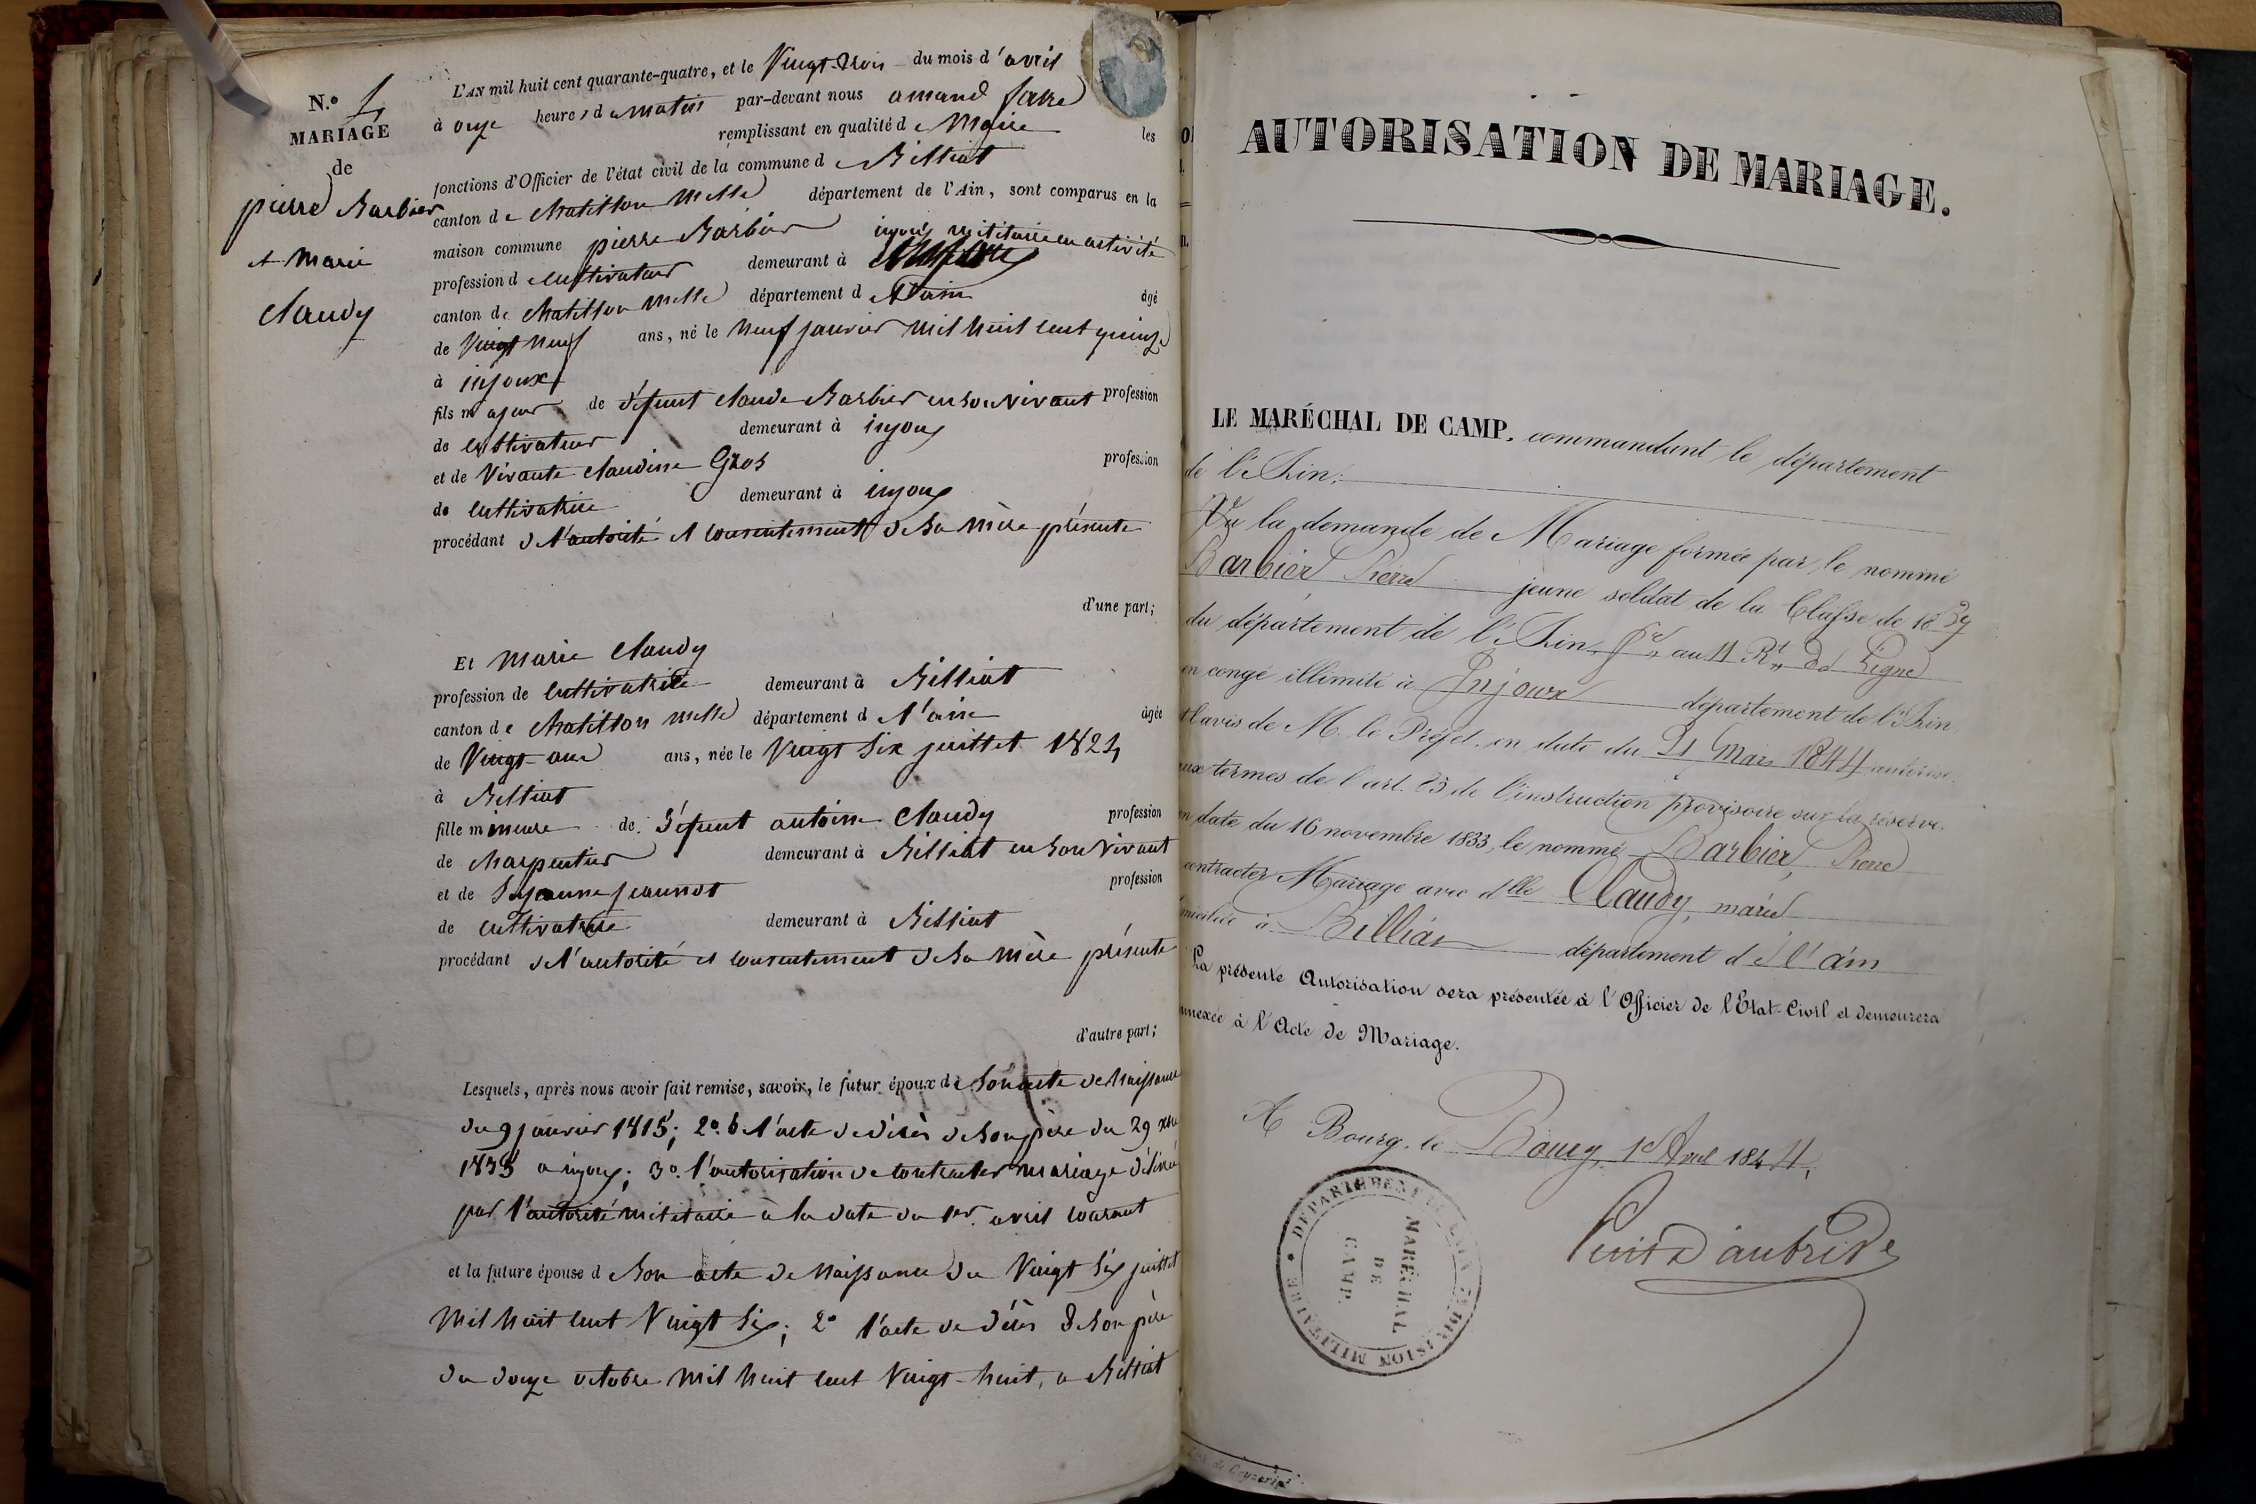 N.o 4
MARIAGE
de
pierre Barbier
et Marie
Claudy
L'AN mil huit cent quarante-quatre, et le Vingt trois du mois d'avril
à onze heures du matin par-devant nous amand favre
remplissant en qualité de Maire les
fonctions d'Officier de l'état civil de la commune de Billiat
canton de Chatillon Mlle département de l'Ain, sont comparus en la
maison commune pierre Barbier
injoux militaire en activité
profession de cultivateur demeurant à
canton de Chatillon Mlle département de l'ain âgé
de Vingt neuf ans, né le neuf janvier mil huit cent quinze
à injoux
fils majeur de défunt claude Barbier en son vivant profession
de cultivateur demeurant à injoux
et de Vivante claudine Gros profession
de cultivatrice demeurant à injoux
procédant de l'autorité et consentement de sa mère présente
d'une part;
Et Marie Claudy
profession de cultivatrice demeurant à Billiat
canton de Chatillon Mlle département de l'ain âgée
de Vingt ans, née le Vingt six juillet 1824
à Billiat
fille mineure de défunt antoine Claudy profession
de charpentier demeurant à Billiat en son vivant
et de Suzanne jeannot profession
de cultivatrice demeurant à Billiat
procédant de l'autorité et consentement de sa mère présente
d'autre part;
Lesquels, après nous avoir fait remise, savoir, le futur époux de Son acte de Naissance
du 9 janvier 1815; 2o de l'acte de décès de son père du 29 xbre
1835 a injoux; 3o l'autorisation de contracter mariage délivrée
par l'autorité militaire à la date du 1er avril courant
et la future épouse de Son acte de Naissance du Vingt Six juillet
Mil huit cent Vingt Six; 2o l'acte de décès de son père
du douze octobre mil huit cent vingt-huit, a Billiat
AUTORISATION DE MARIAGE.
LE MARÉCHAL DE CAMP, commandant le département
de l'Ain;
Vu la demande de Mariage formée par le nommé
Barbier Pierre jeune soldat de la Classe de 18
du département de l'Ain, au Rt de Ligne
en congé illimité à Injoux département de l'Ain
et l'avis de M. le Préfet, en date du 21 Mars 1844 autorise,
aux termes de l'art. 23 de l'instruction provisoire sur les réserve
en date du 16 novembre 1833, le nommé Barbier, Pierre
contracter Mariage avec dlle Claudy, marie
domiciliée à Billiat département de l'ain
La présente Autorisation sera présentée à l'Officier de l'Etat-Civil et demeurera
annexée à l'Acte de Mariage.
A Bourg, le Bourg, 1er Avril 1844,
Petit D'autrive
DEPARTEMENT DE L'AIN DIVISION MILITAIRE
MARÉCHAL
DE
CAMP.